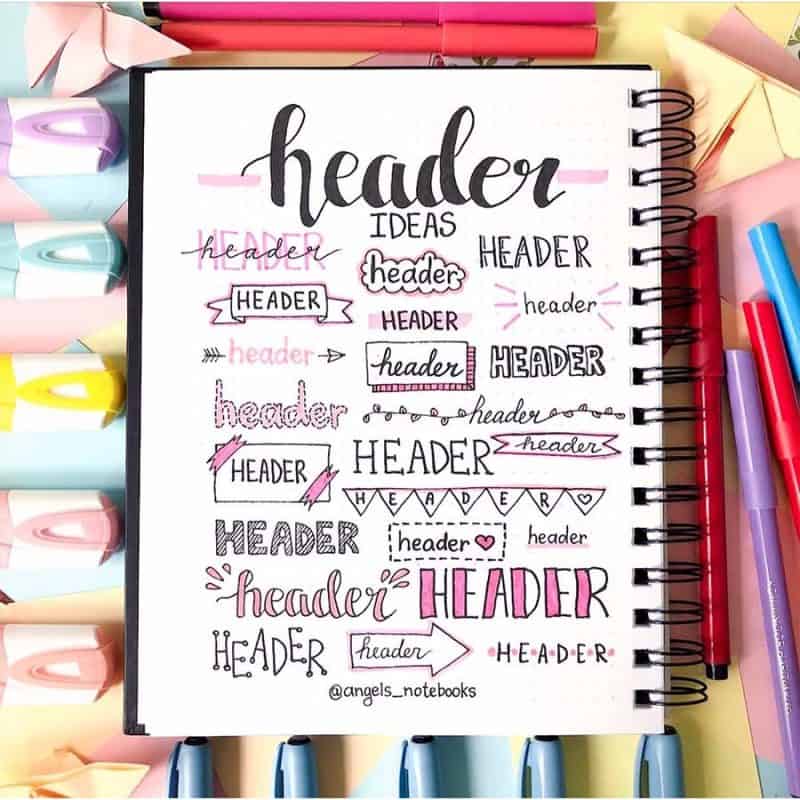 header
IDEAS
HEADER
header
header
HEADER
HEADER
HEADER
header
header
header
HEADER
header
header
HEADER
HEADER
header
HEADER
HEADER
header
header
header
HEADER
HEADER
header
H-E-A-D-E-R
@angels_notebooks